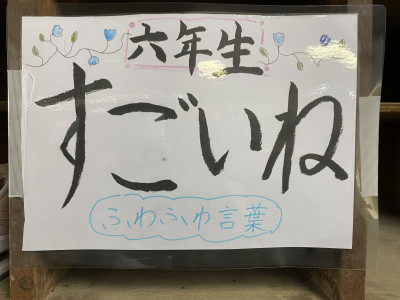 六年生
すごいね
ふわふわ言葉